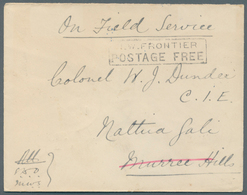 On Field Service
N.W. FRONTIER
POSTAGE FREE
Colonel W. J. Dundee
C.I.E.
Nathia Gali
Murree Hills